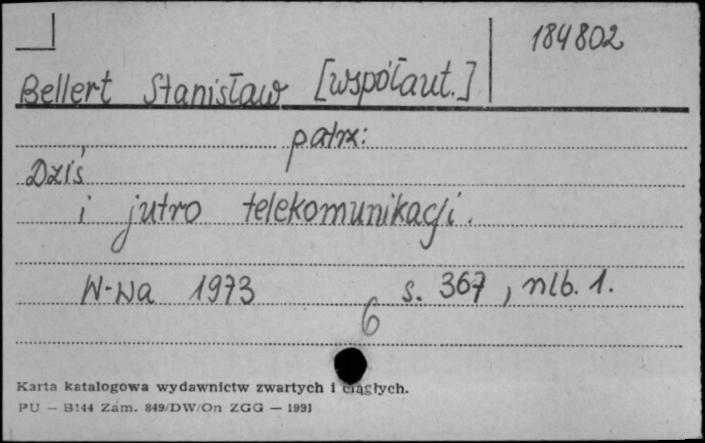 184802
Bellert Stanisław [współaut.]
patrz:
Dziś
i jutro telekomunikacji.
W-wa 1973 s. 367, nlb. 1.
6
Karta katalogowa wydawnictw zwartych i ciągłych.
PU — B144 Zam. 849/DW/On ZGG — 1991